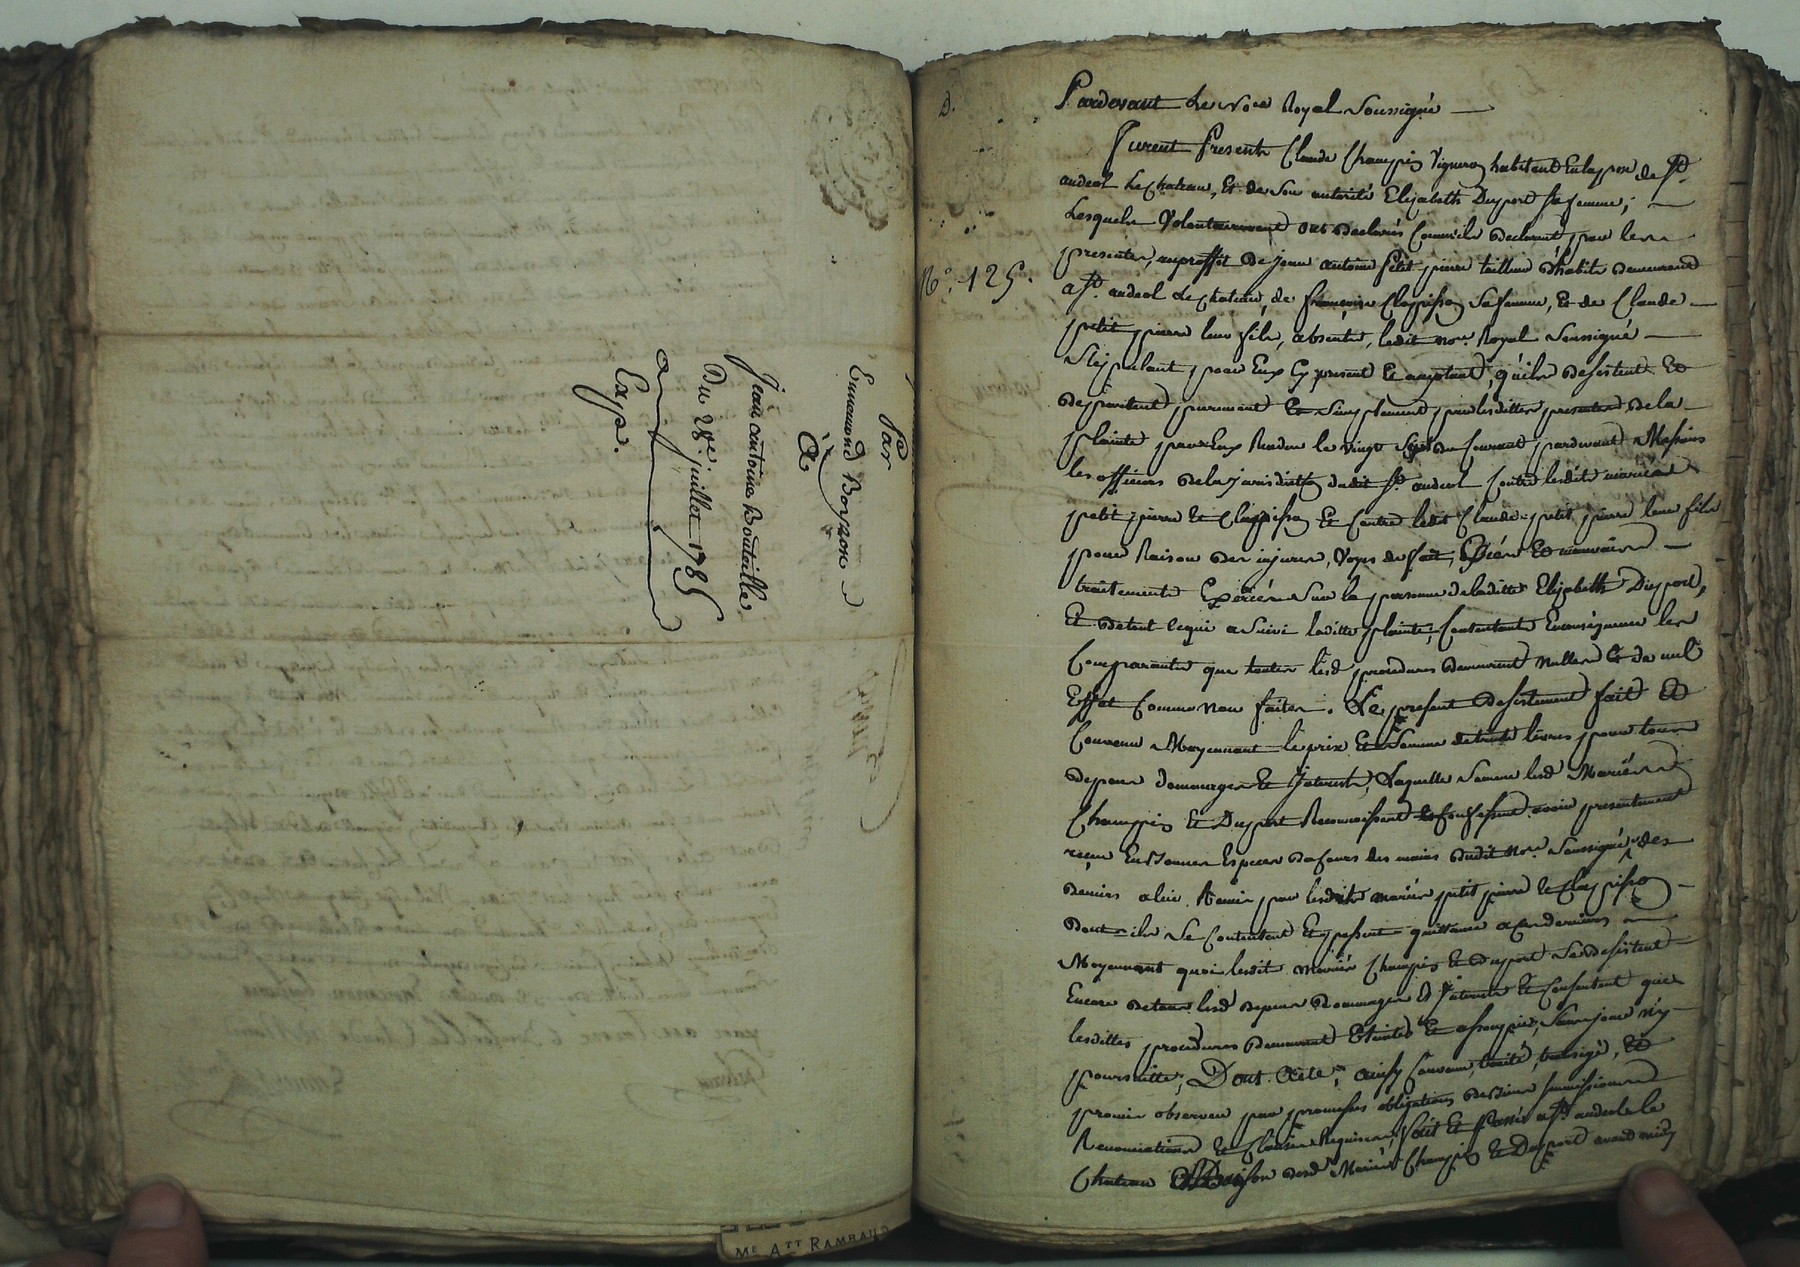 Par
Ennemond Boyron
à
Jean antoine Boutaille
Du 28e. juillet 1785
Exp.
Me Att RAMBAUD
D.
No. 125.
Pardevant Le No.re Royal Soussigné
Furent Presents Claude Champin Vigneron habitant En la p.sse de St.
andeol Le Chateau, Et de Son autorité Elizabeth Duport Sa femme,
Lesquels Volontairement ont declarés Comm'ils declarent par les
presentes, au proffit de jean antoine petit pierre tailleur d'habits demeurant
a St. andeol Le Chateau, de françoise Clapisson Sa femme, Et de Claude
petit pierre leur fils, absents, ledit no.re Royal Soussigné
Stipulant pour Eux Cy present Et aceptant, qu'ils desistent Et
departent purement Et Simplement par lesdittes presentes de la
plainte par Eux Rendue le vingt Sept du Courant pardevant Messieurs
les officiers de la jurisdiction dudit St. andeol Contre lesdits mariés
petit pierre Et Clapisson Et Contre ledit Claude petit pierre leur fils
pour Raison des injures, Voyes de fait, Excés Et mauvais
traitements Exercés Sur la personne de laditte Elizabeth Duport,
Et de tout Ce qui a Suivi laditte plainte, Consentants En consequence les
Comparants que toutes lesd. procedures demeurent Nulles Et de nul
Effet Comme Non faites. Le present desistement fait Et
Convenu Moyennant le prix Et Somme de trente livres pour tous
depens dommages Et Interests, Laquelle Somme lesd. Mariés
Champin Et Duport Reconnoissent Et Confessent avoir presentement
reçue En Bonnes Especes de Cours des mains dudit No.re Soussigné des
deniers a lui Remis par lesdits mariés petit pierre Et Clapisson
dont ils Se Contentent Et passent quittance a Ces derniers
Moyennant quoi lesdits mariés Champin Et Duport Se desistent
Encore de tous lesd. depens dommages Et Interests Et Consentent que
lesdittes procedures demeurent Eteintes Et assoupies, Sans jamais n'y
poursuitte, Dont Acte, ainsy Convenu, traité, transigé, Et
promis observer par promesses obligations de biens Soumissions
Renonciations Et Clauses Requises, Fait Et Passé a St. andeol le
Chateau Maison desd. Mariés Champin Et Duport avant midy